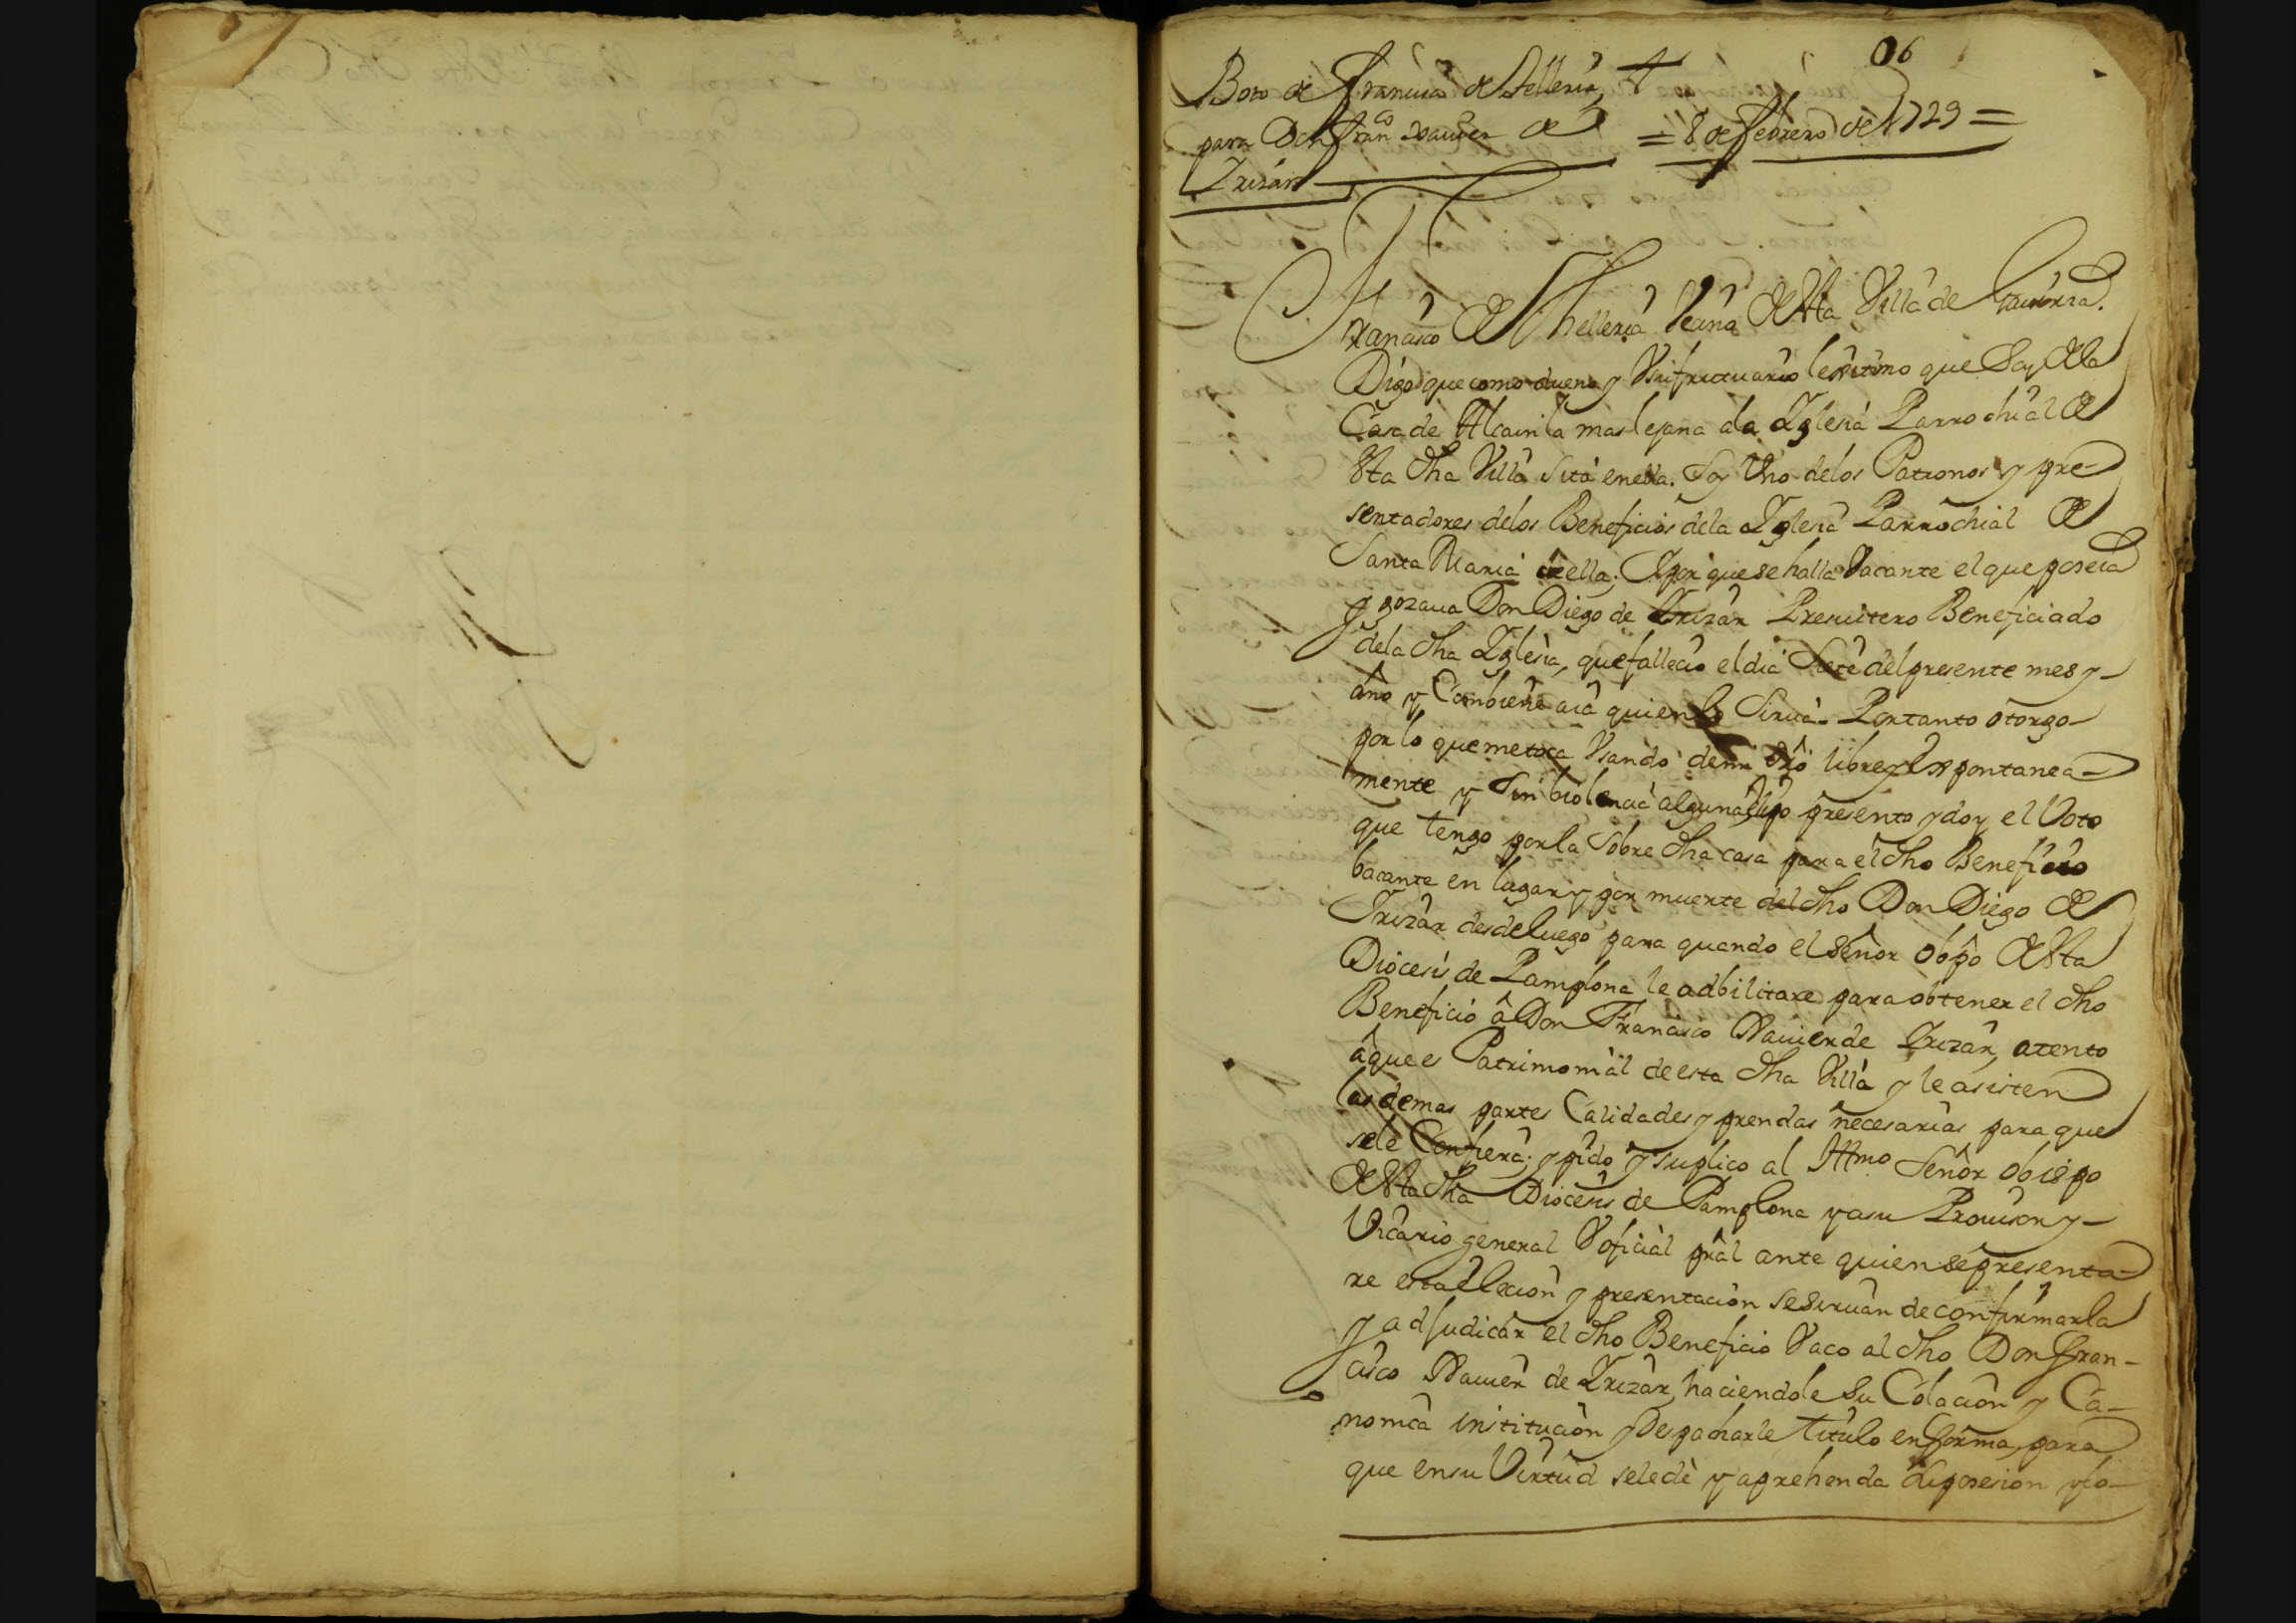 06
Boto de Francisco de Telleria
para Don Franco Xauier de = 8 de febrero de 1729 =
Irizar
Francisco de Thelleria Vecino desta Villa de
Digo que como dueno y Vsufructuario lexitimo que Soy dela
Casa de Alcain la mas lejana ala Iglesia Parrochial de
esta dha Villa sita enella. Soy Vno delos Patronos y pre
sentadores delos Beneficios dela Iglesia Parrochial de
Santa Maria de ella; Y por que se halla Vacante el que poseia
y gozaua Don Diego de Irizar Presuitero Beneficiado
dela dha Iglesia, que fallecio el dia Siete del presente mes y
año y Combiene aia quien lo Sirua. Por tanto otorgo
por lo que me toca Vsando de mi dro libre y espontanea
mente y Sin biolencia alguna elijo presento y doy el Voto
que tengo por la sobre dha casa para el dho Beneficio
bacante en lugar y por muerte del dho Don Diego de
Irizar desde luego para quando el señor obpo desta
Diocesis de Pamplona le adbilitare para obtener el dho
Beneficio â Don Francisco Xauier de Irizar, atento
âque es Patrimonial de esta dha Villa y le asisten
las demas partes Calidades y prendas necesarias para que
sele Confiera; y pido y suplico al Illmo Señor obispo
desta dha Diocesis de Pamplona y asu Prouisor y
Vicario general V oficial pràl ante quien se presenta
re esta eleccion y presentacion se siruan de confirmarla
y adjudicar el dho Beneficio Vaco al dho Don Fran-
cisco Xauier de Irizar, haciendole su Colacion y Ca-
nonica institucion y Despacharle titulo en forma, para
que en su Virtud sele dè y aprehenda la posesion y lo